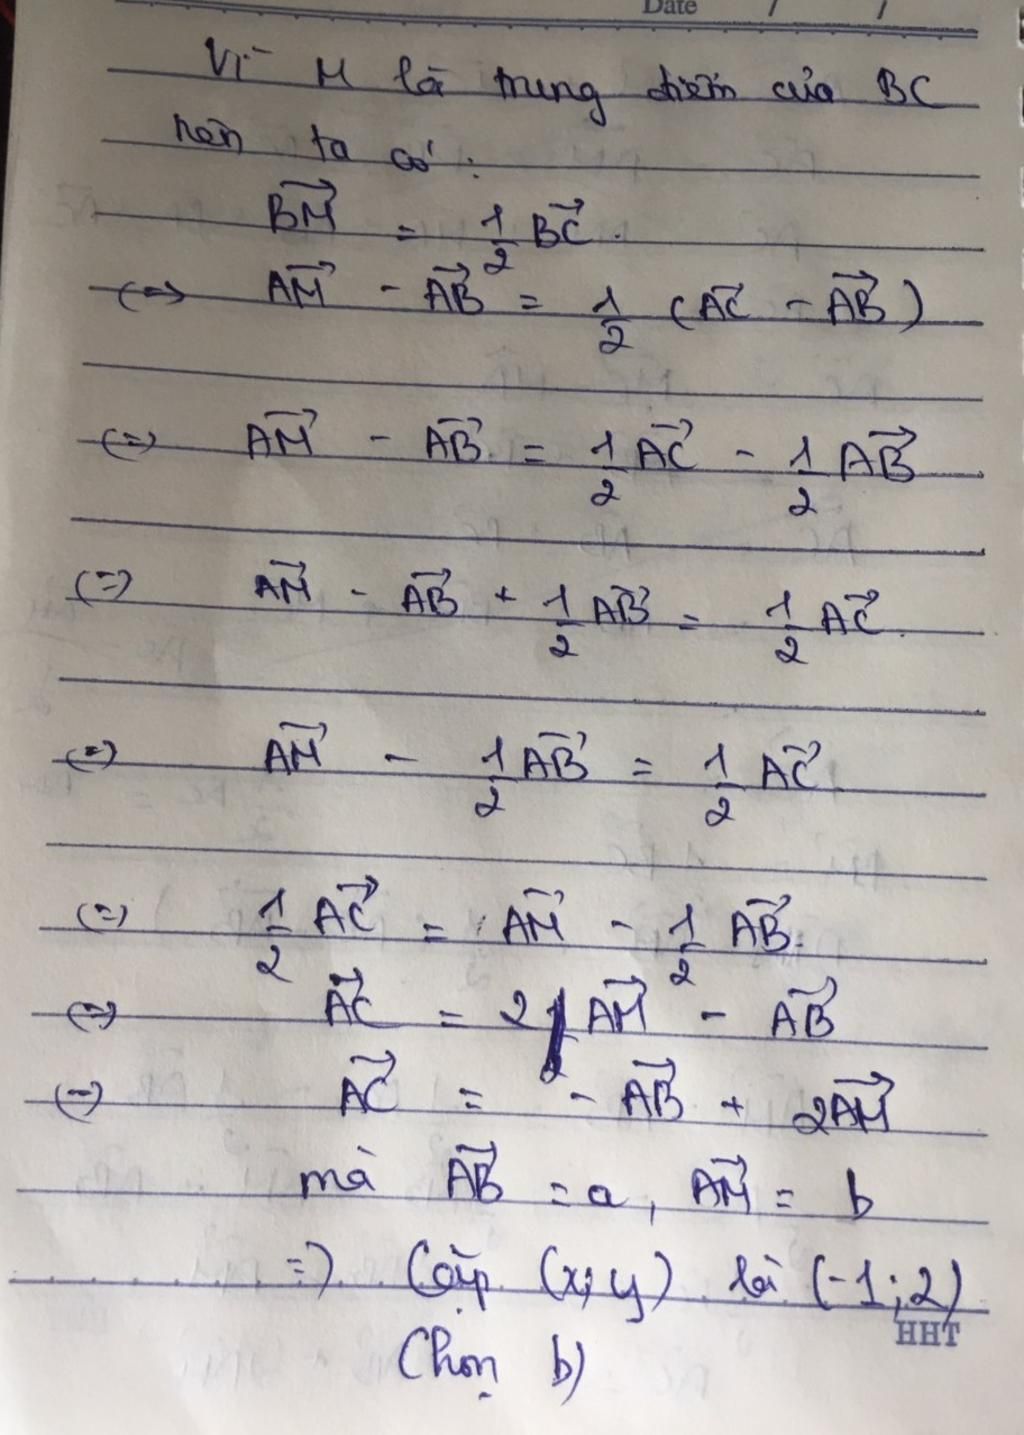 Date / /
Vì M là trung điểm của BC
nên ta có :
$\overrightarrow{BM} = \frac{1}{2} \overrightarrow{BC}$.
(=) $\overrightarrow{AM} - \overrightarrow{AB} = \frac{1}{2} (\overrightarrow{AC} - \overrightarrow{AB})$
(=) $\overrightarrow{AM} - \overrightarrow{AB} = \frac{1}{2} \overrightarrow{AC} - \frac{1}{2} \overrightarrow{AB}$
(=) $\overrightarrow{AM} - \overrightarrow{AB} + \frac{1}{2} \overrightarrow{AB} = \frac{1}{2} \overrightarrow{AC}$.
(=) $\overrightarrow{AM} - \frac{1}{2} \overrightarrow{AB} = \frac{1}{2} \overrightarrow{AC}$.
(=) $\frac{1}{2} \overrightarrow{AC} = \overrightarrow{AM} - \frac{1}{2} \overrightarrow{AB}$.
(=) $\overrightarrow{AC} = 2 \overrightarrow{AM} - \overrightarrow{AB}$
(=) $\overrightarrow{AC} = - \overrightarrow{AB} + 2\overrightarrow{AM}$
mà $\overrightarrow{AB} = a, \overrightarrow{AM} = b$
=) Cặp (x;y) là (-1;2)
HHT
Chọn b)